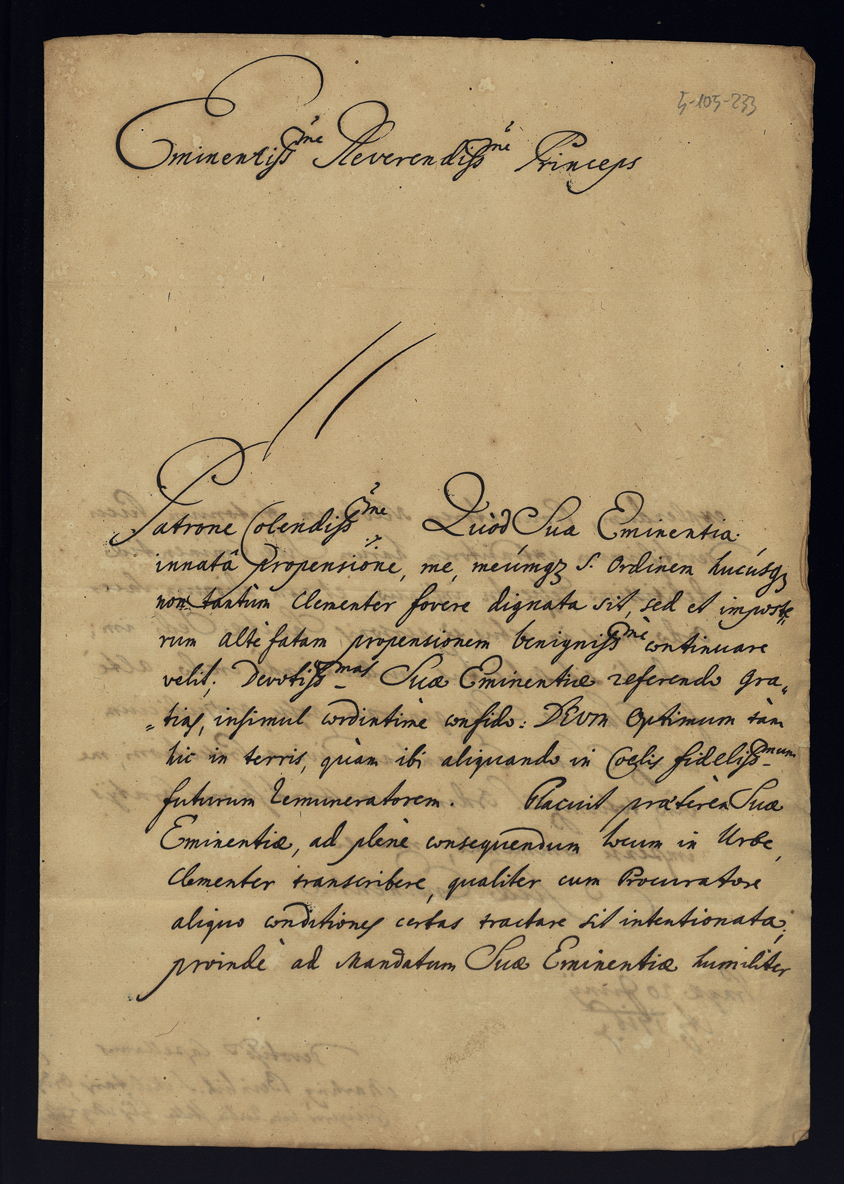 5-105-233
Eminentissme Reverendissme Princeps
Patrone Colendissme Quòd Sua Eminentia
innatâ propensione, me, meúmq3 S. Ordinem hucúsq3
non tantùm Clementer fovere dignata sit, sed et imposte„
rum altè fatam propensionem benignissmè continuare
velit; Devotissmas Suæ Eminentiæ referendo gra„
„tias, insimul cordintimè confido: DEVM Optimum tàm
hic in terris, quàm ibi aliquando in Coelis fidelissmum
futurum Remuneratorem. Placuit præterea Suæ
Eminentiæ, ad plenè consequendum locum in Urbe,
Clementer transcribere, qualiter cum Procuratore
aliquo conditiones certas tractare sit intentionata;
proindè ad Mandatum Suæ Eminentiæ humiliter